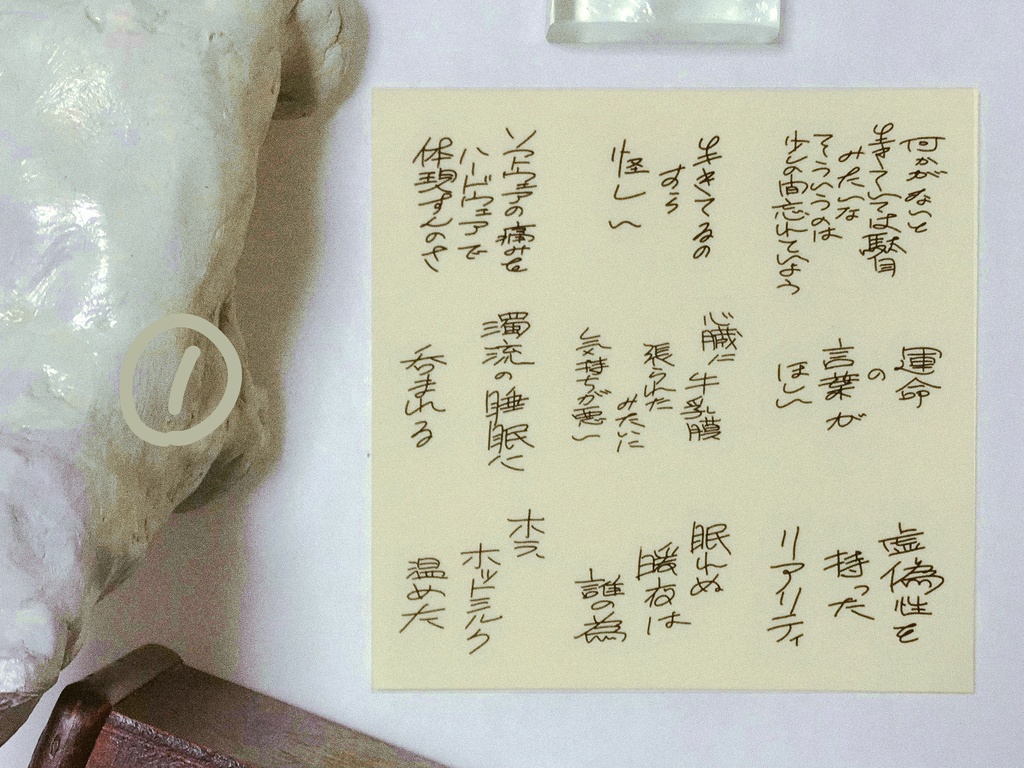 何かがないと
生きていては駄目
みたいな
そういうのは
少しの間忘れていよう
生きてるの
すら
怪しい
ソフトウェアの痛みを
ハードウェアで
体現すんのさ
運命
の
言葉が
ほしい
心臓に牛乳膜
張られた
みたいに
気持ちが悪い
濁流の睡眠に
呑まれる
虚偽性を
持った
リアリティ
眠れぬ
暖夜は
誰の為
ホラ、
ホットミルク
温めた
1